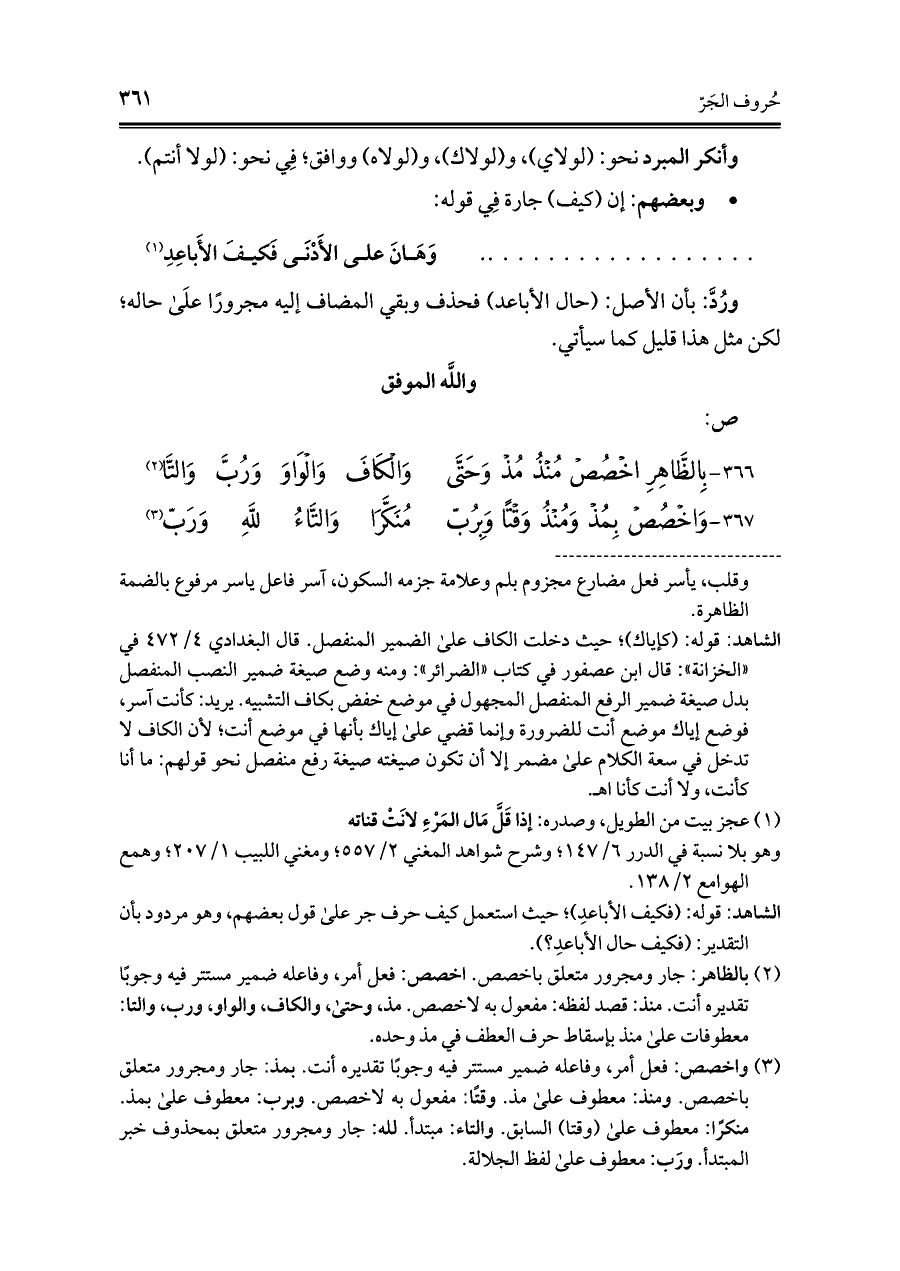 حُروف الجَرّ ٣٦١
وأنكر المبرد نحو: (لولاي)، و(لولاك)، و(لولاه) ووافق؛ فِي نحو: (لولا أنتم).
• وبعضهم: إن (كيف) جارة فِي قوله:
. . . . . . . . . . . . . . . . . .. وَهَـانَ علـى الأَدْنَـى فَكيـفَ الأَباعِدِ(١)
ورُدَّ: بأن الأصل: (حال الأباعد) فحذف وبقي المضاف إليه مجرورًا علَىٰ حاله؛
لكن مثل هذا قليل كما سيأتي.
واللَّه الموفق
ص:
٣٦٦- بِالظَّاهِرِ اخْصُصْ مُنْذُ مُذْ وَحَتَّى وَالْكَافَ وَالْوَاوَ وَرُبَّ وَالتَّا(٢)
٣٦٧- وَاخْصُصْ بِمُذْ وَمُنْذُ وَقْتًا وَبِرُبّ مُنَكَّرًا وَالتَّاءُ للَّهِ وَرَبّ(٣)
وقلب، يأسر فعل مضارع مجزوم بلم وعلامة جزمه السكون، آسر فاعل ياسر مرفوع بالضمة
الظاهرة.
الشاهد: قوله: (كإياك)؛ حيث دخلت الكاف علىٰ الضمير المنفصل. قال البغدادي ٤/ ٤٧٢ في
«الخزانة»: قال ابن عصفور في كتاب «الضرائر»: ومنه وضع صيغة ضمير النصب المنفصل
بدل صيغة ضمير الرفع المنفصل المجهول في موضع خفض بكاف التشبيه. يريد: كأنت آسر،
فوضع إياك موضع أنت للضرورة وإنما قضي علىٰ إياك بأنها في موضع أنت؛ لأن الكاف لا
تدخل في سعة الكلام علىٰ مضمر إلا أن تكون صيغته صيغة رفع منفصل نحو قولهم: ما أنا
كأنت، ولا أنت كأنا اهـ.
(١) عجز بيت من الطويل، وصدره: إذا قَلَّ مَال المَرْءِ لانَتْ قناته
وهو بلا نسبة في الدرر ٦/ ١٤٧؛ وشرح شواهد المغني ٢/ ٥٥٧؛ ومغني اللبيب ١/ ٢٠٧؛ وهمع
الهوامع ٢/ ١٣٨.
الشاهد: قوله: (فكيف الأباعدِ)؛ حيث استعمل كيف حرف جر علىٰ قول بعضهم، وهو مردود بأن
التقدير: (فكيف حال الأباعدِ؟).
(٢) بالظاهر: جار ومجرور متعلق باخصص. اخصص: فعل أمر، وفاعله ضمير مستتر فيه وجوبًا
تقديره أنت. منذ: قصد لفظه: مفعول به لاخصص. مذ، وحتىٰ، والكاف، والواو، ورب، والتا:
معطوفات علىٰ منذ بإسقاط حرف العطف في مذ وحده.
(٣) واخصص: فعل أمر، وفاعله ضمير مستتر فيه وجوبًا تقديره أنت. بمذ: جار ومجرور متعلق
باخصص. ومنذ: معطوف علىٰ مذ. وقتًا: مفعول به لاخصص. وبرب: معطوف علىٰ بمذ.
منكرًا: معطوف علىٰ (وقتا) السابق. والتاء: مبتدأ. لله: جار ومجرور متعلق بمحذوف خبر
المبتدأ. ورَب: معطوف علىٰ لفظ الجلالة.